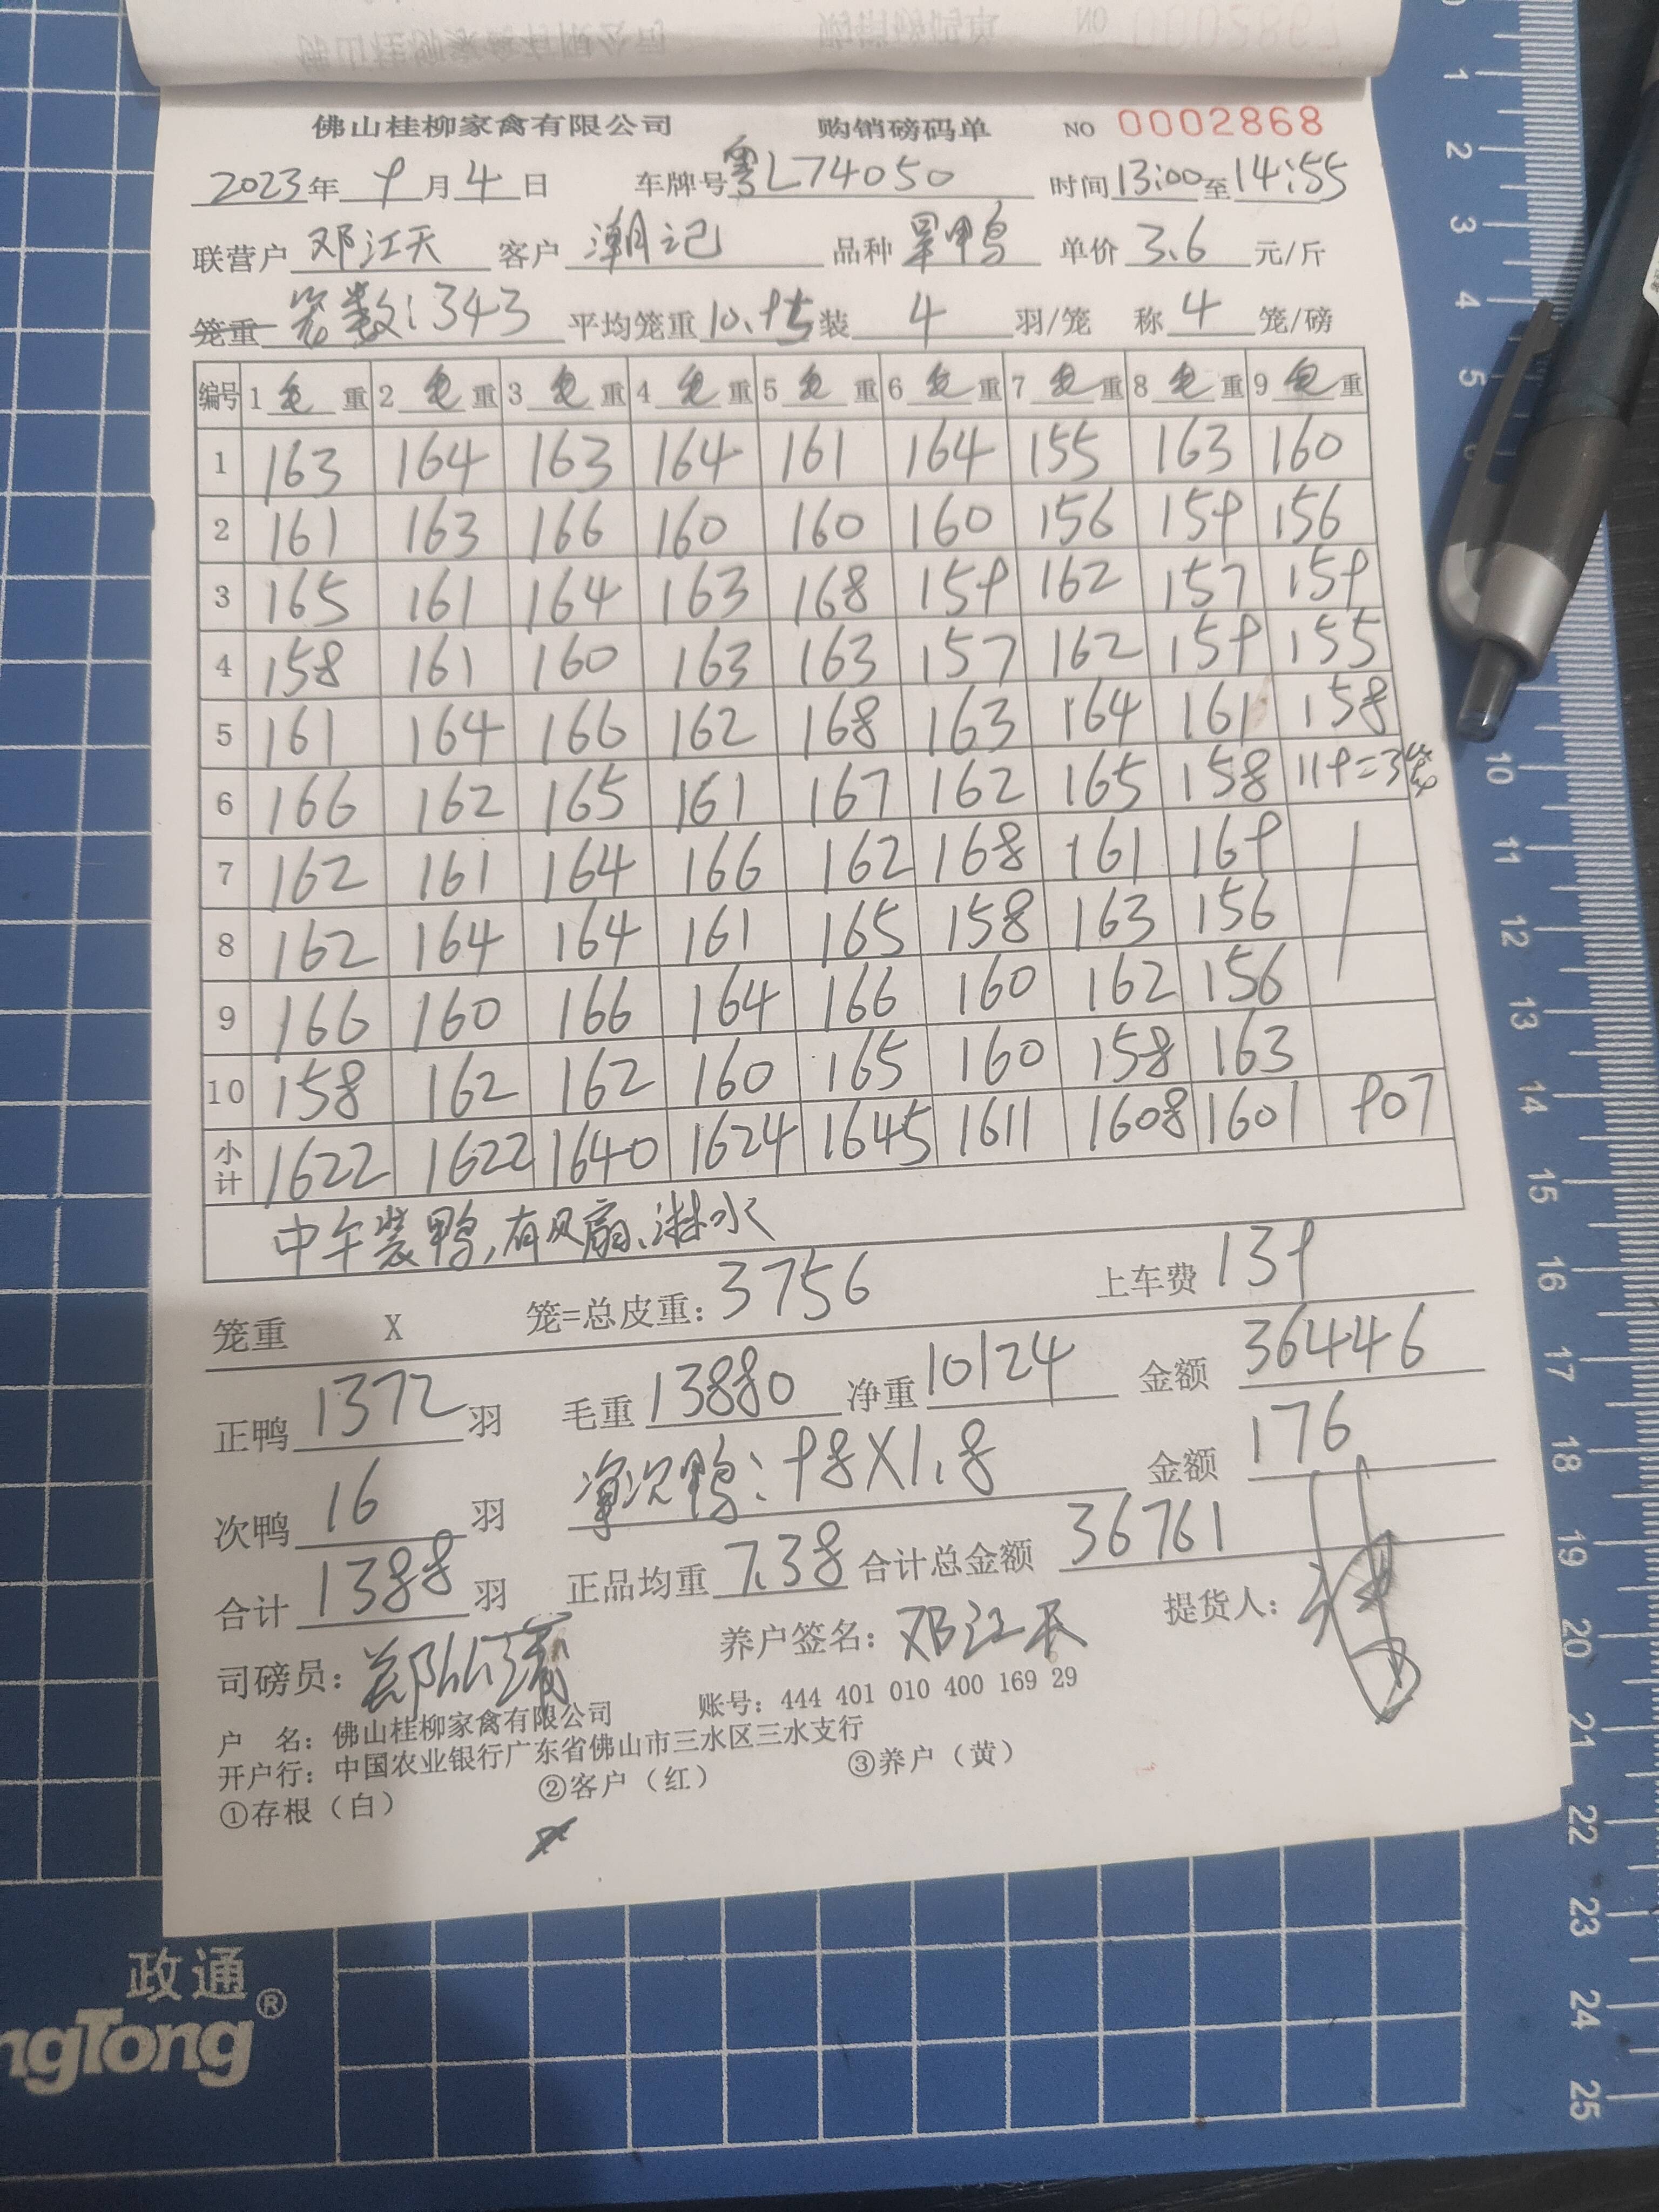 佛山桂柳家禽有限公司 购销磅码单 NO 0002868
2023年 9月4日 车牌号粤L74050 时间13:00至14:55
联营户 邓江天 客户 潮记 品种 鸭 单价 3.6 元/斤
笼重 笼数:343 平均笼重10.95装 4 羽/笼 称 4 笼/磅
编号 1 毛 重 2 毛 重 3 毛 重 4 毛 重 5 毛 重 6 毛 重 7 毛 重 8 毛 重 9 毛 重
1 163 164 163 164 161 164 155 163 160
2 161 163 166 160 160 160 156 159 156
3 165 161 164 163 168 159 162 157 159
4 158 161 160 163 163 157 162 159 155
5 161 164 166 162 168 163 164 161 158
6 166 162 165 161 167 162 165 158 119=3笼
7 162 161 164 166 162 168 161 169
8 162 164 164 161 165 158 163 156
9 166 160 166 164 166 160 162 156
10 158 162 162 160 165 160 158 163
小计 1622 1622 1640 1624 1645 1611 1608 1601 907
中午装鸭,有风扇、淋水
笼重 X 笼=总皮重: 3756 上车费 139
正鸭 1372 羽 毛重 13880 净重 10124 金额 36446
次鸭 16 羽 次鸭: 98X1.8 金额 176
合计 1388 羽 正品均重 7.38 合计总金额 36761
司磅员: 养户签名: 邓江天 提货人:
户 名: 佛山桂柳家禽有限公司 账号: 444 401 010 400 169 29
开户行: 中国农业银行广东省佛山市三水区三水支行
①存根(白) ②客户(红) ③养户(黄)
政通®
ngTong
1
2
3
4
5
10
11
12
13
14
15
16
17
18
19
20
21
22
23
24
25